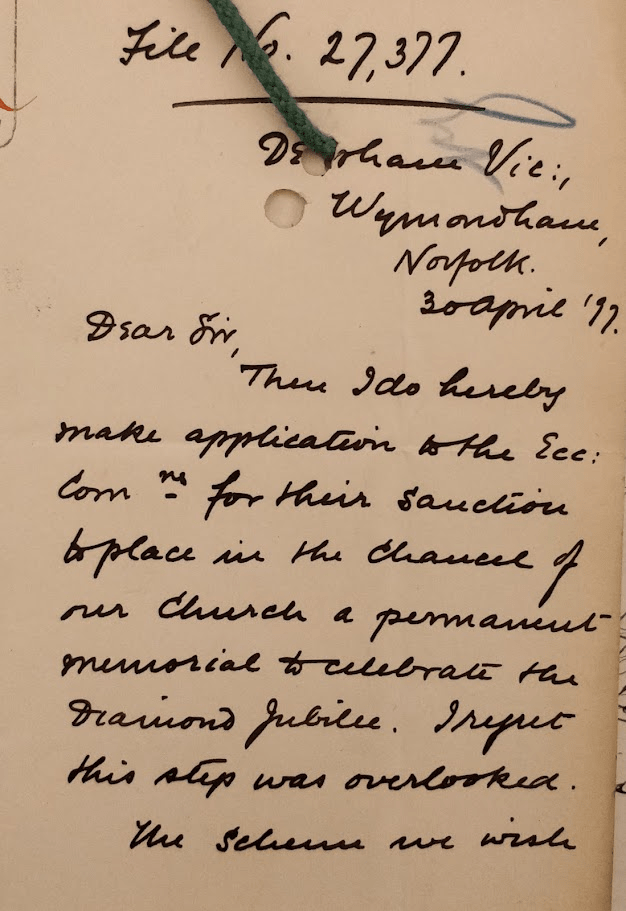 File No. 27,377.
Deopham Vic:,
Wymondham,
Norfolk.
30 April '97.
Dear Sir,
Then I do hereby
make application to the Ecc:
Com ns for their sanction
to place in the chancel of
our Church a permanent
memorial to celebrate the
Diamond Jubilee. I regret
this step was overlooked.
The scheme we wish